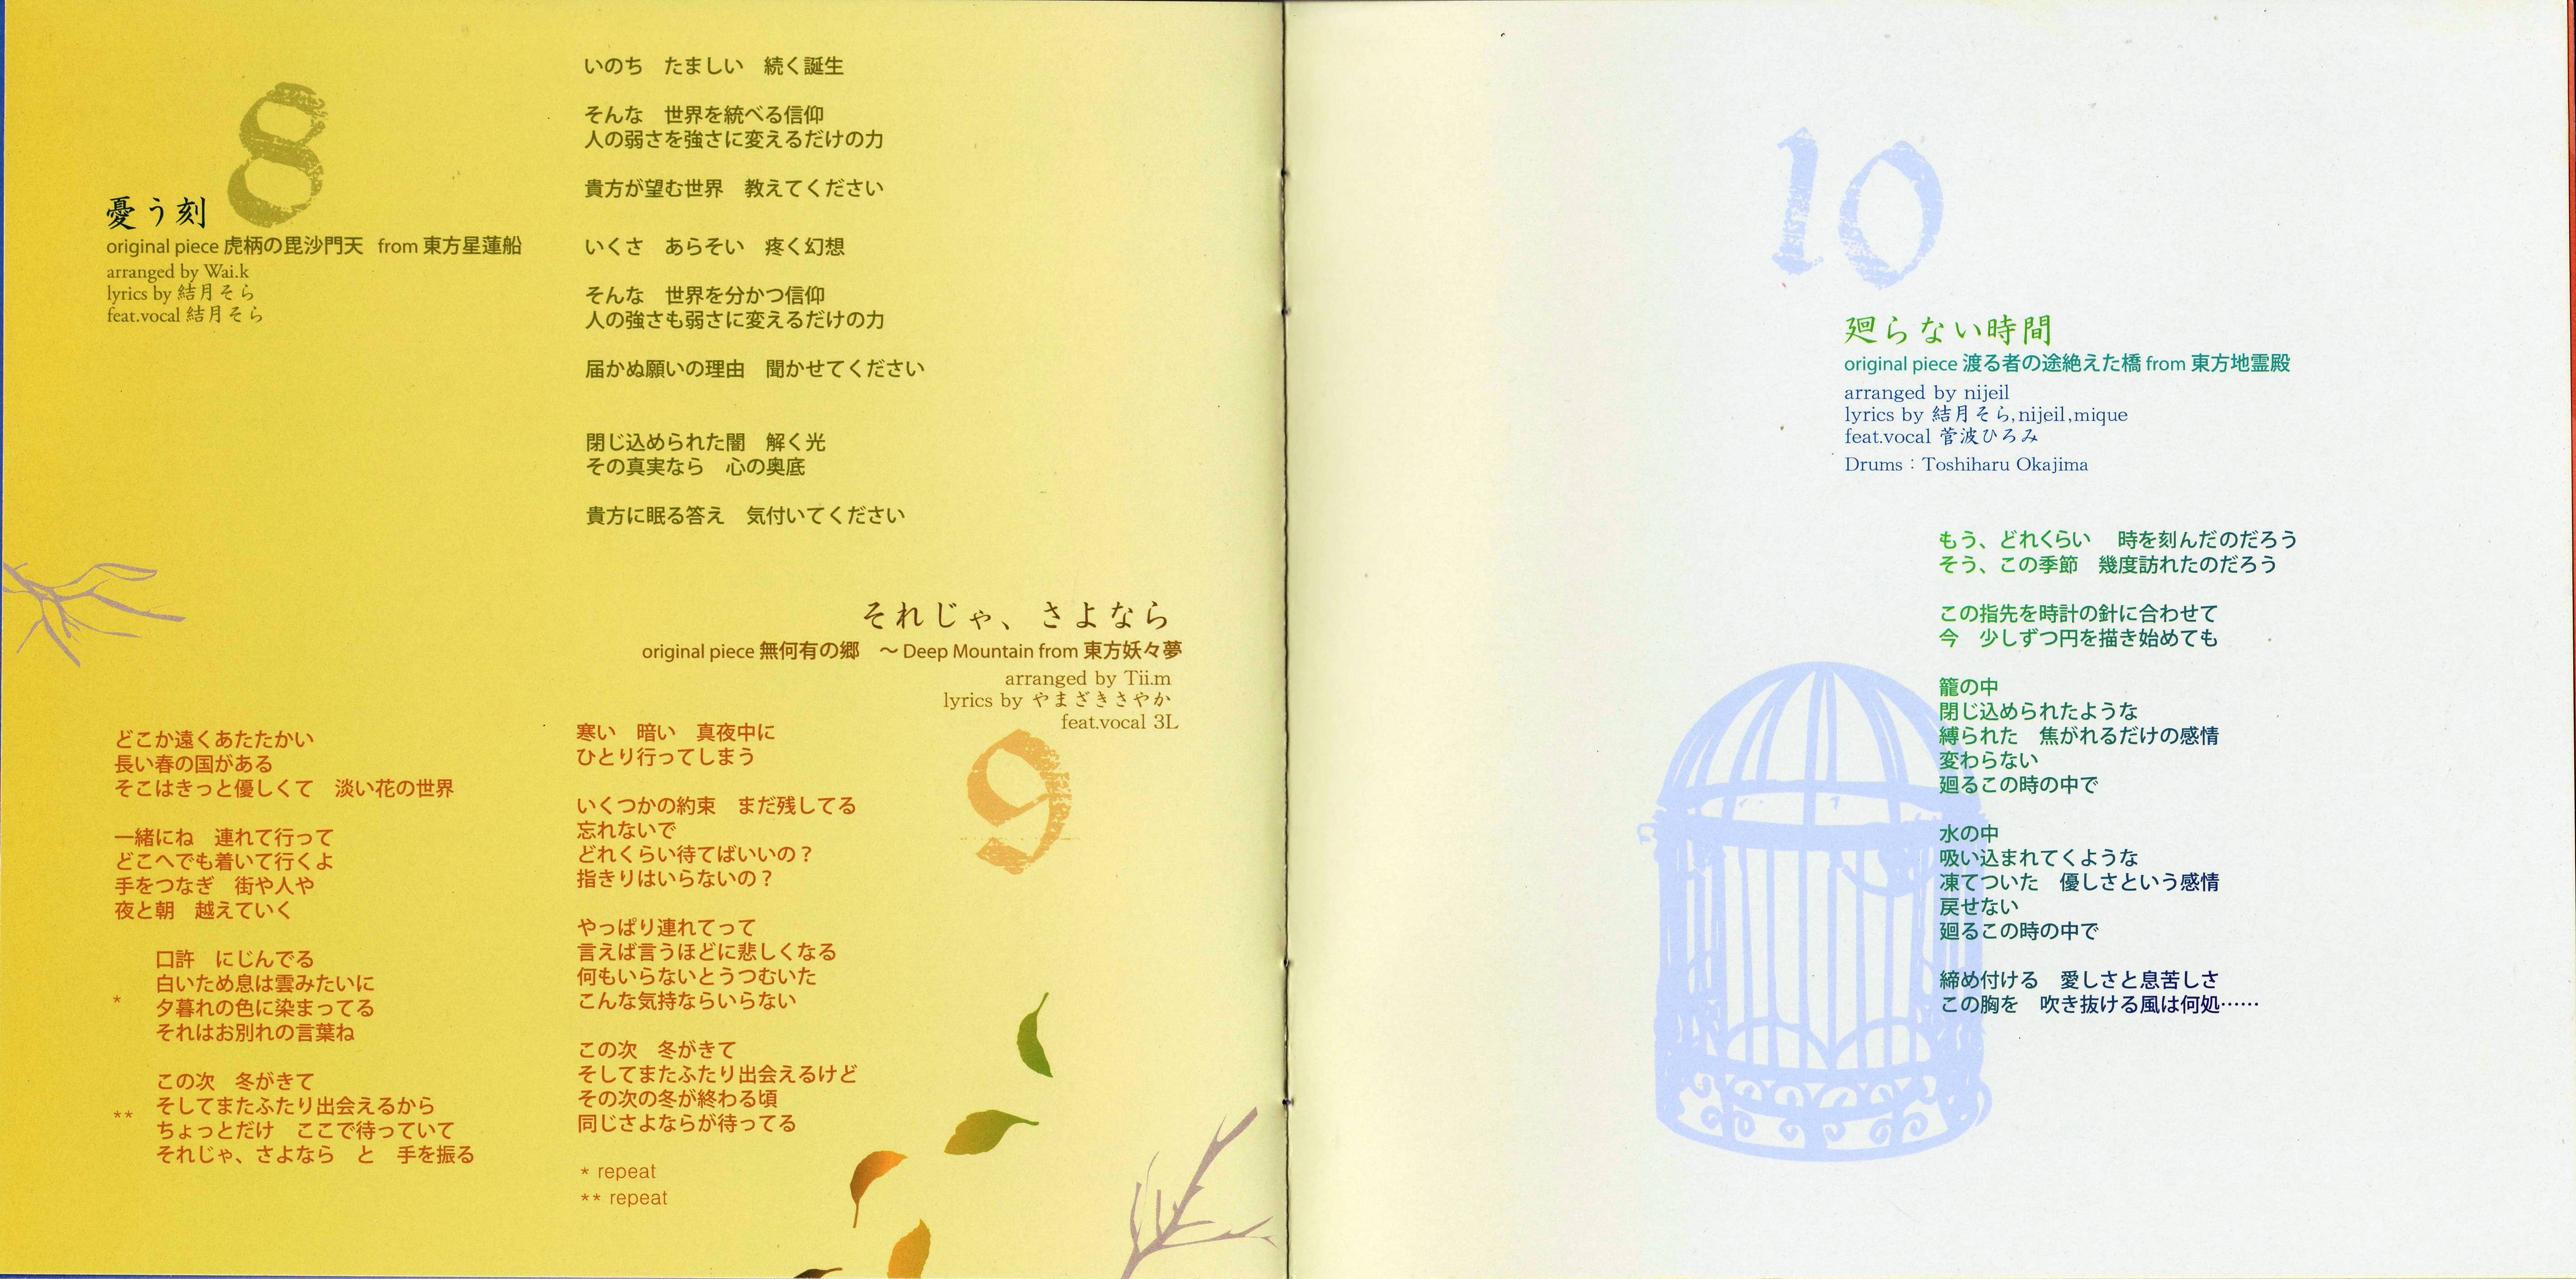 8
憂う刻
original piece 虎柄の毘沙門天 from 東方星蓮船
arranged by Wai.k
lyrics by 結月そら
feat.vocal 結月そら
いのち　たましい　続く誕生
そんな　世界を統べる信仰
人の弱さを強さに変えるだけの力
貴方が望む世界　教えてください
いくさ　あらそい　疼く幻想
そんな　世界を分かつ信仰
人の強さも弱さに変えるだけの力
届かぬ願いの理由　聞かせてください
閉じ込められた闇　解く光
その真実なら　心の奥底
貴方に眠る答え　気付いてください
それじゃ、さよなら
original piece 無何有の郷　～ Deep Mountain from 東方妖々夢
arranged by Tii.m
lyrics by やまざきさやか
feat.vocal 3L
9
どこか遠くあたたかい
長い春の国がある
そこはきっと優しくて　淡い花の世界
一緒にね　連れて行って
どこへでも着いて行くよ
手をつなぎ　街や人や
夜と朝　越えていく
口許　にじんでる
白いため息は雲みたいに
* 夕暮れの色に染まってる
それはお別れの言葉ね
この次　冬がきて
** そしてまたふたり出会えるから
ちょっとだけ　ここで待っていて
それじゃ、さよなら　と　手を振る
寒い　暗い　真夜中に
ひとり行ってしまう
いくつかの約束　まだ残してる
忘れないで
どれくらい待てばいいの？
指きりはいらないの？
やっぱり連れてって
言えば言うほどに悲しくなる
何もいらないとうつむいた
こんな気持ならいらない
この次　冬がきて
そしてまたふたり出会えるけど
その次の冬が終わる頃
同じさよならが待ってる
* repeat
** repeat
10
廻らない時間
original piece 渡る者の途絶えた橋 from 東方地霊殿
arranged by nijeil
lyrics by 結月そら,nijeil,mique
feat.vocal 菅波ひろみ
Drums：Toshiharu Okajima
もう、どれくらい　時を刻んだのだろう
そう、この季節　幾度訪れたのだろう
この指先を時計の針に合わせて
今　少しずつ円を描き始めても
籠の中
閉じ込められたような
縛られた　焦がれるだけの感情
変わらない
廻るこの時の中で
水の中
吸い込まれてくような
凍てついた　優しさという感情
戻せない
廻るこの時の中で
締め付ける　愛しさと息苦しさ
この胸を　吹き抜ける風は何処……